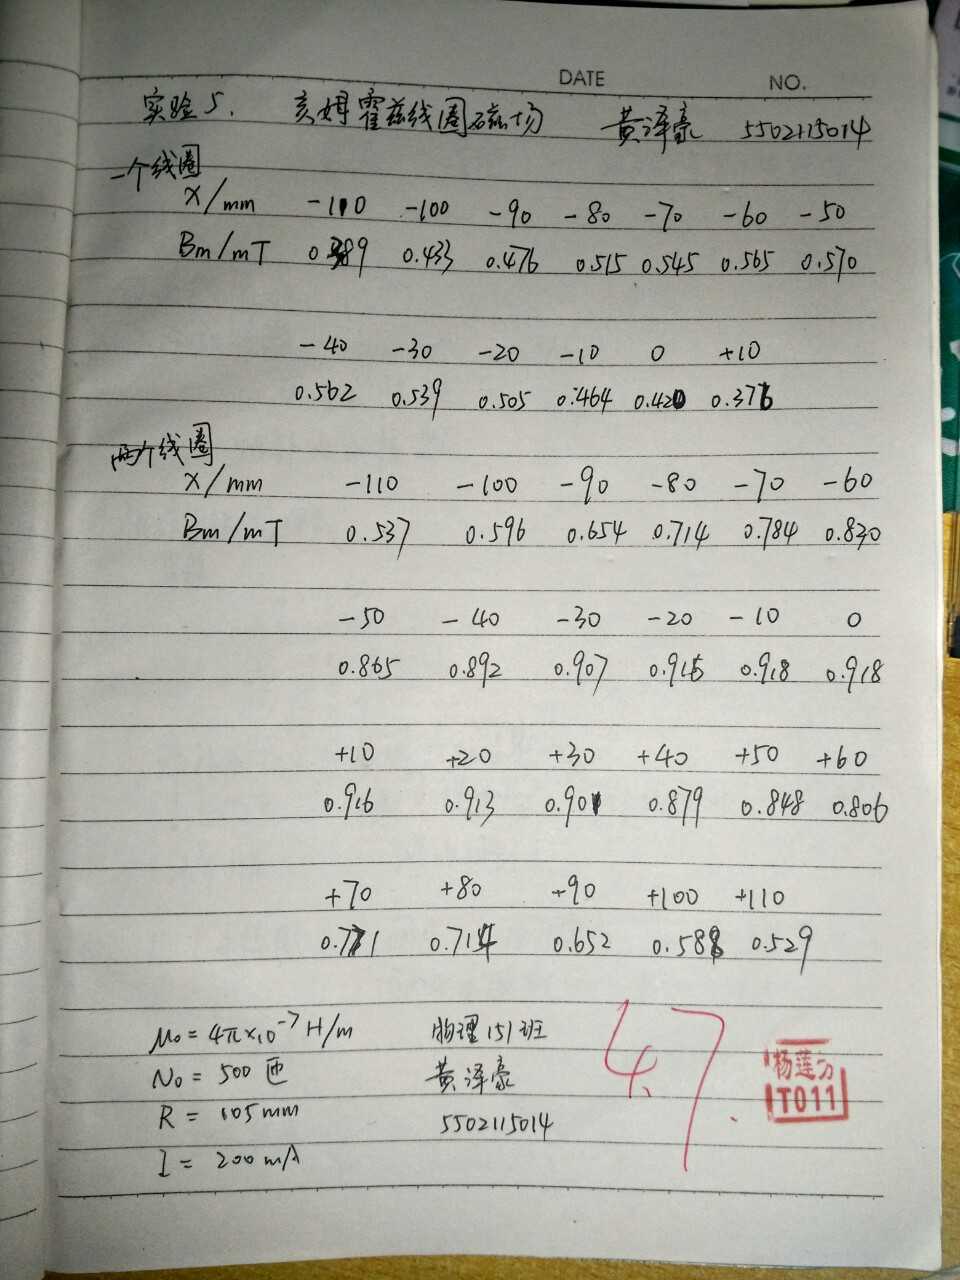 DATE NO.
实验5. 亥姆霍兹线圈磁场 黄泽豪 5502115014
一个线圈
X/mm -110 -100 -90 -80 -70 -60 -50
Bm/mT 0.389 0.433 0.476 0.515 0.545 0.565 0.570
-40 -30 -20 -10 0 +10
0.562 0.539 0.505 0.464 0.420 0.376
两个线圈
X/mm -110 -100 -90 -80 -70 -60
Bm/mT 0.537 0.596 0.654 0.714 0.784 0.830
-50 -40 -30 -20 -10 0
0.865 0.892 0.907 0.915 0.918 0.918
+10 +20 +30 +40 +50 +60
0.916 0.913 0.901 0.879 0.848 0.806
+70 +80 +90 +100 +110
0.771 0.714 0.652 0.588 0.529
μ₀=4π×10⁻⁷H/m 物理151班
N₀=500匝 黄泽豪
R=105mm 5502115014
I=200mA
4.7
杨莲
T011